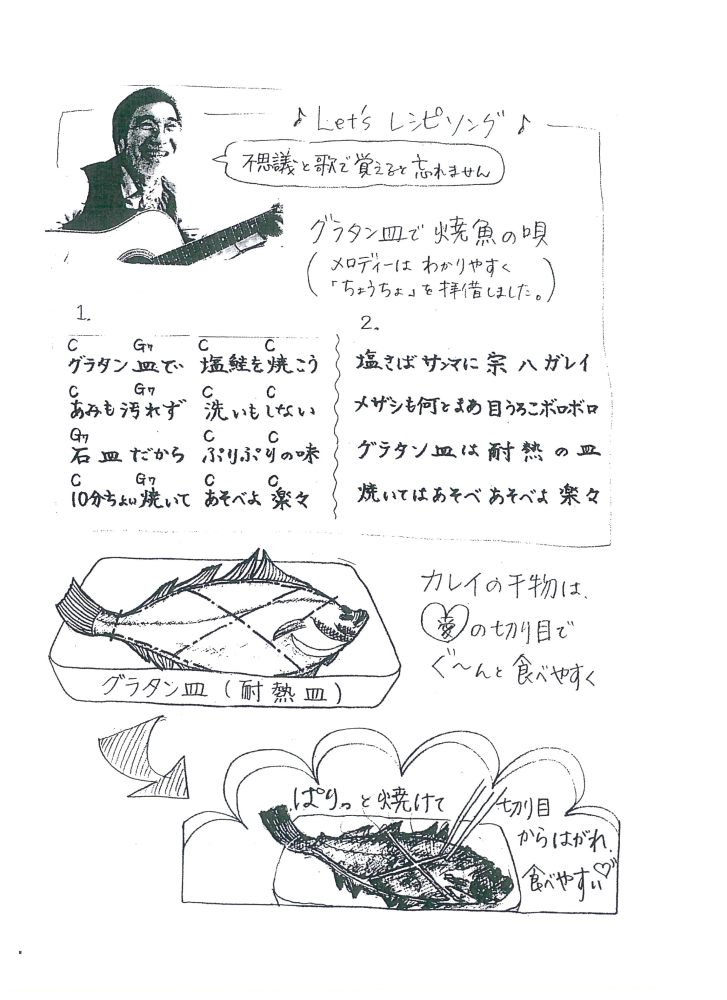 ♪ Let's レシピソング ♪
不思議と歌で覚えると忘れません
グラタン皿で焼魚の唄
(メロディーは わかりやすく
「ちょうちょ」を拝借しました。)
1.
C G7 C C
グラタン皿で 塩鮭を焼こう
C G7 C C
あみも汚れず 洗いもしない
G7 C C
石皿だから ぷりぷりの味
C G7 C C
10分ちょい焼いて あそべよ楽々
2.
塩さば サンマに 宗八ガレイ
メザシも何とまあ 目うろこボロボロ
グラタン皿は 耐熱の皿
焼いてはあそべ あそべよ 楽々
カレイの干物は、
愛の切り目で
ぐ〜んと食べやすく
グラタン皿(耐熱皿)
ぱりっと焼けて
切り目
からはがれ、
食べやすい♡